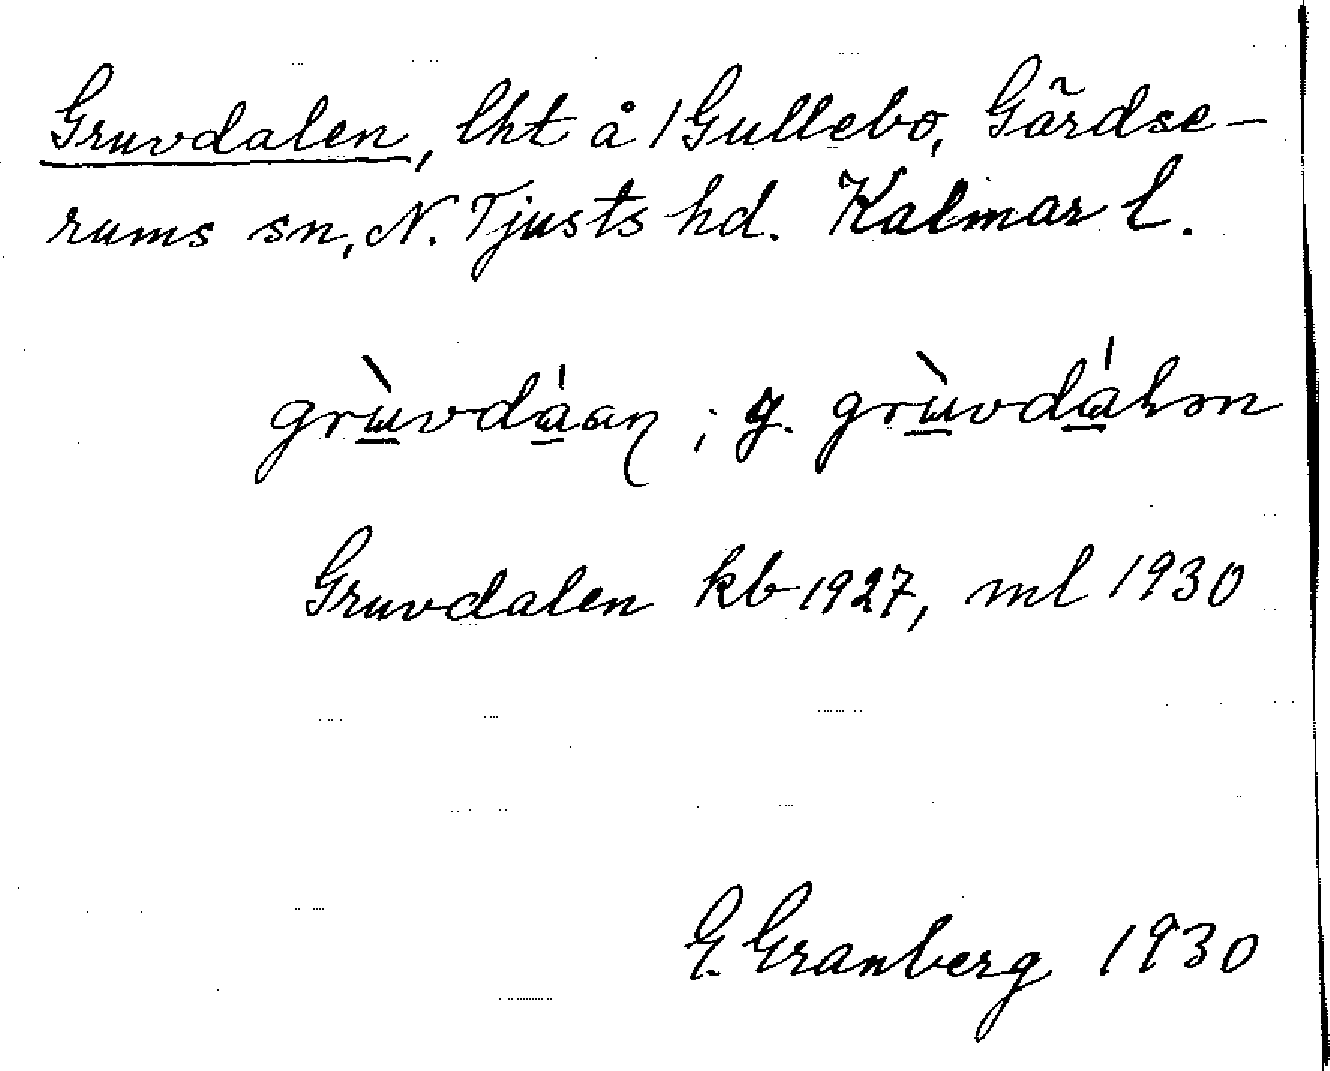 Gruvdalen, lht å 1 Gullebo, Gärdse-
rums sn, N. Tjusts hd. Kalmar l.
grùvdáan ; g. grùvdálən
Gruvdalen kb 1927, ml 1930
G. Granberg 1930